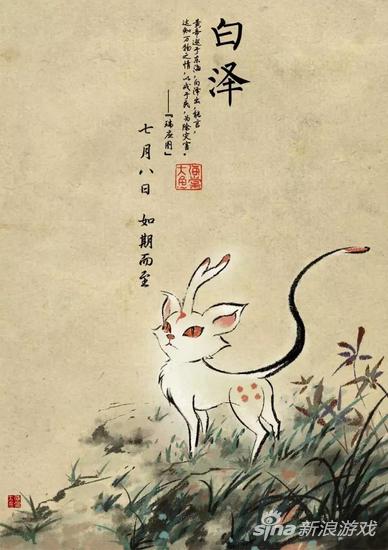 白泽
黄帝巡于东海，白泽出，能言，
达知万物之情，以戒于民，为除灾害。
——「瑞应图」
七月八日 如期而至
sina新浪游戏